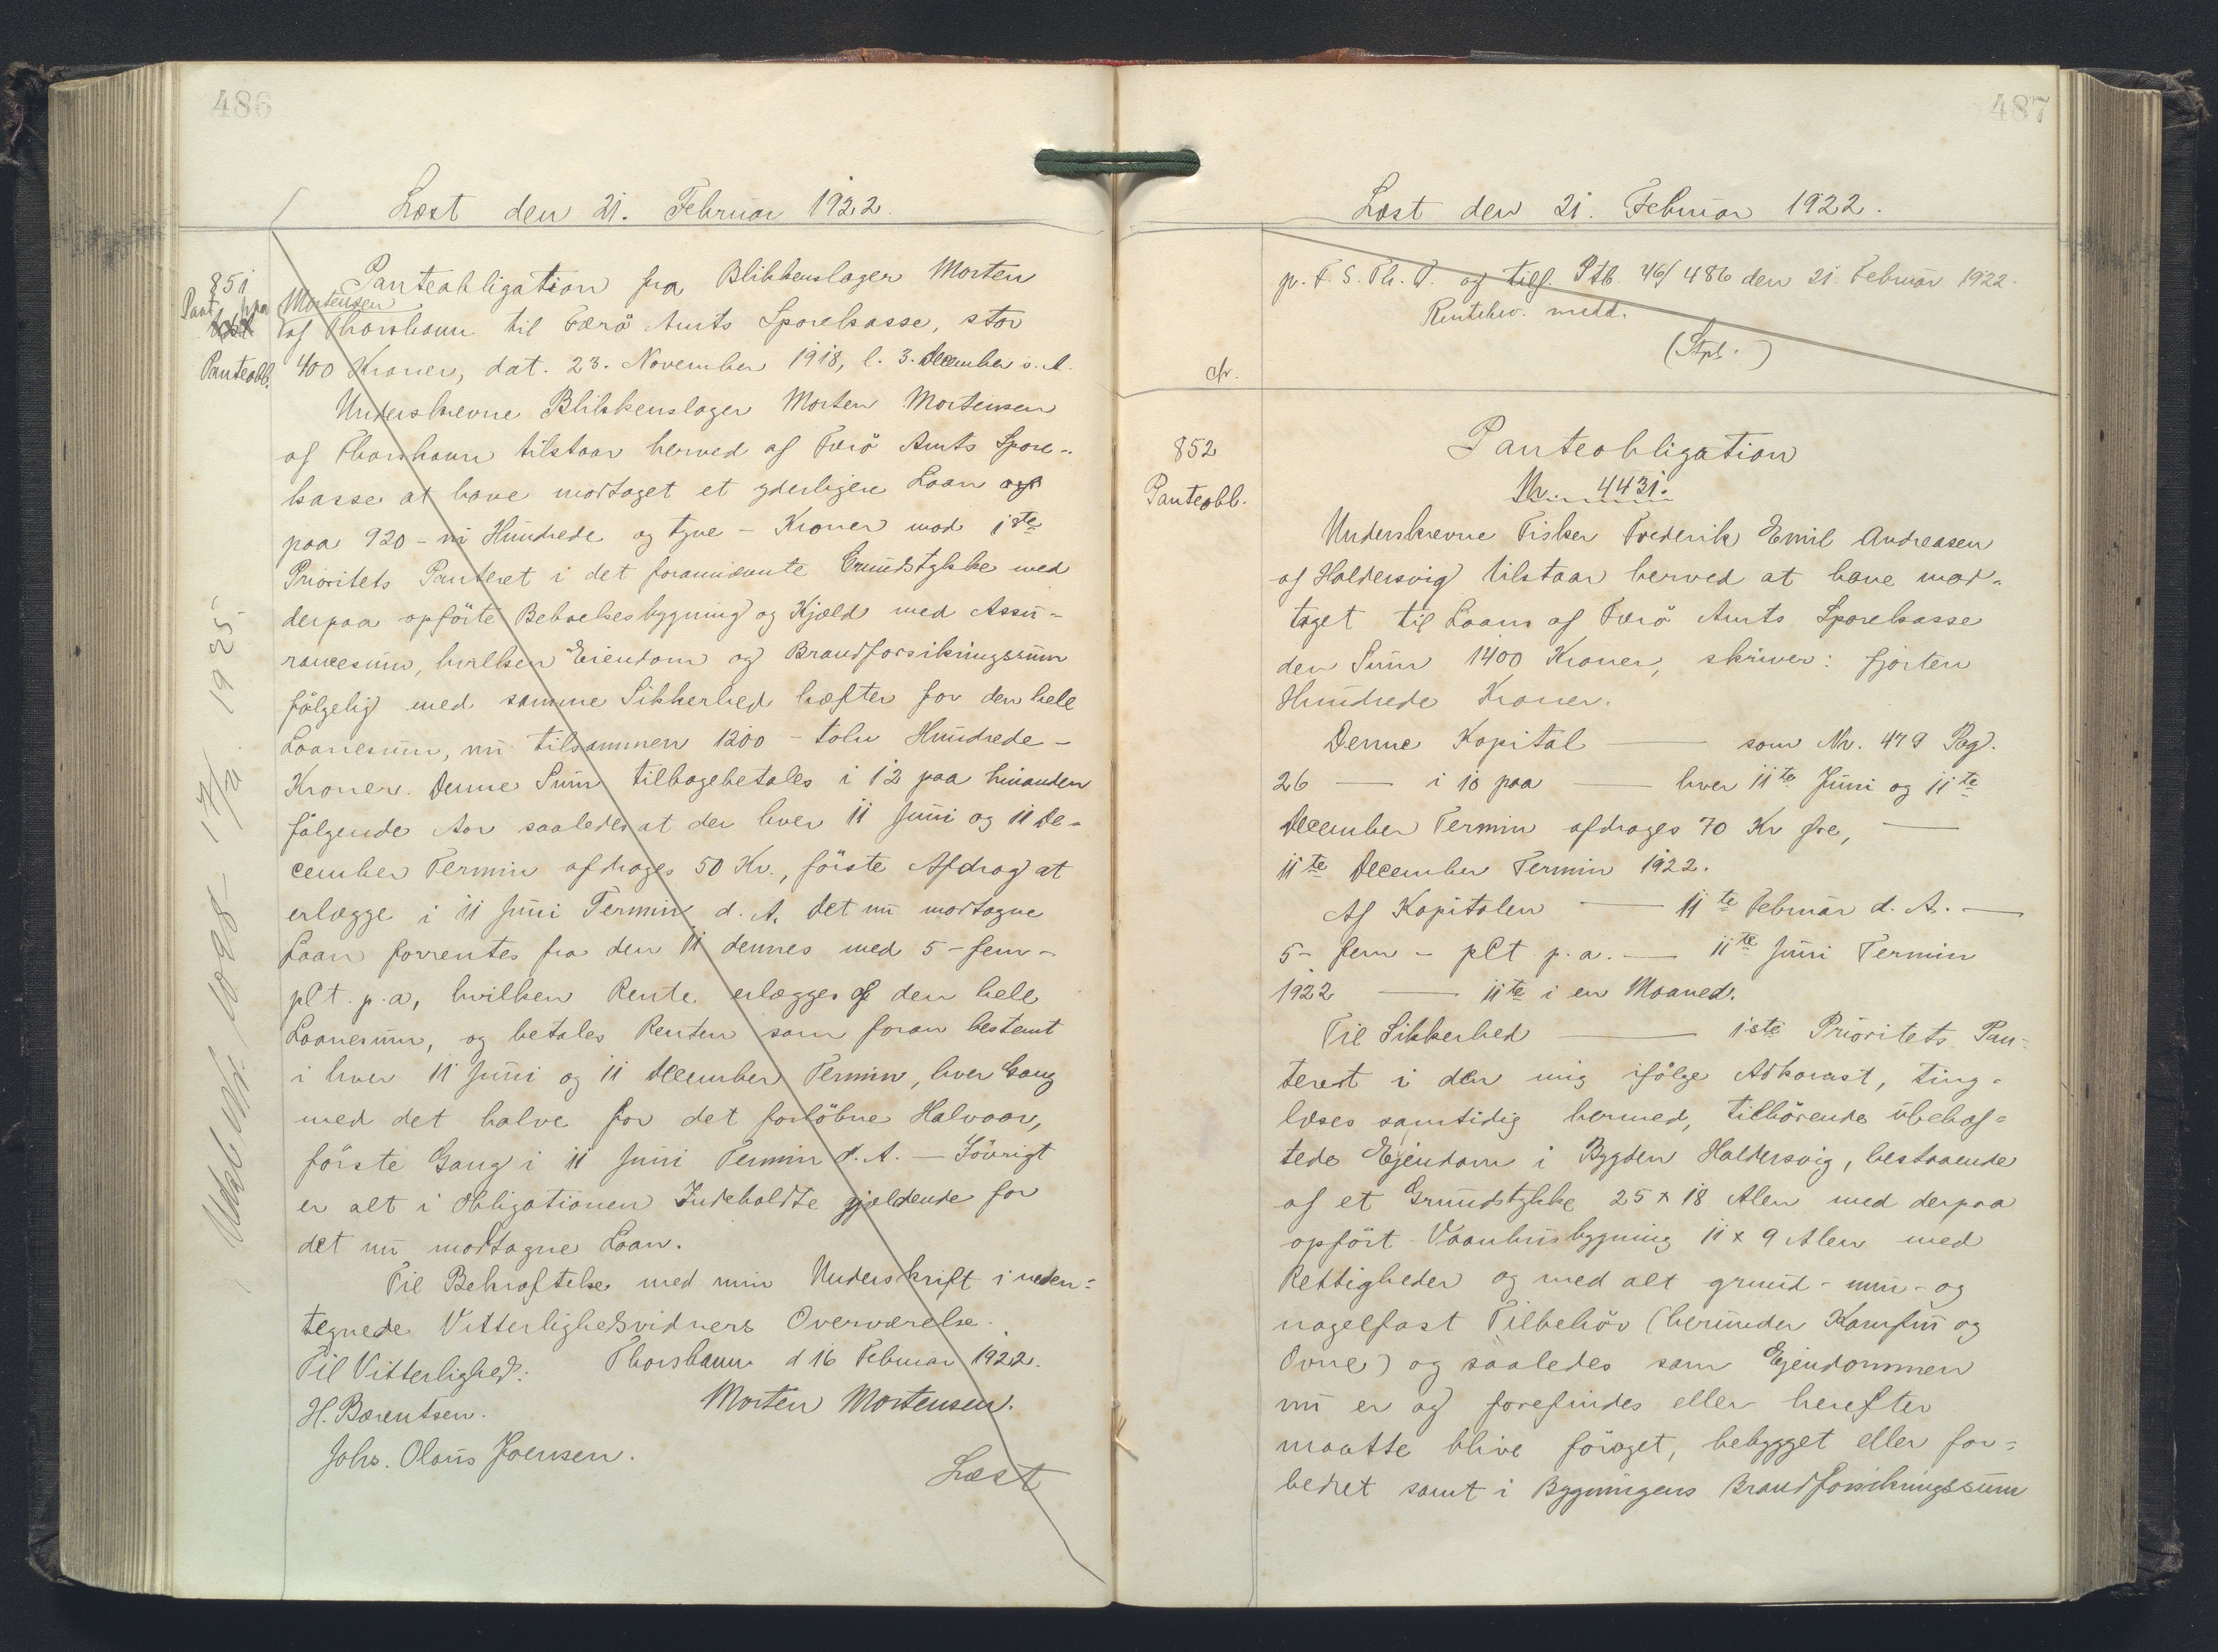 486
Læst den 21. Februar 1922.
851
Pant. ppa
Panteobl.
Udsl. Nr. 1098 - 17/12 1925
Panteobligation fra Blikkenslager Morten
Mortensen
af Thorshavn til Færö Amts Sparekasse, stor
400 Kroner, dat. 23. November 1918, l. 3. December s. A.
Underskrevne Blikkenslager Morten Mortensen
af Thorshavn tilstaar herved af Færö Amts Spare-
kasse at have modtaget et yderligere Laan
paa 920 - ni Hundrede og tyve - Kroner mod 1ste
Prioritets Panteret i det forannævnte Grundstykke med
derpaa opförte Beboelsesbygning og Kjæld med Assu-
rancesum, hvilken Eiendom og Brandforsikringssum
fölgelig med samme Sikkerhed hæfter for den hele
Laanesum, nu tilsammen 1200 - tolv Hundrede -
Kroner. Denne Sum tilbagebetales i 12 paa hinanden
fölgende Aar saaledes at der hver 11 Juni og 11 De-
cember Termin afdrages 50 Kr., förste Afdrag at
erlægge i 11 Juni Termin d. A. Det nu modtagne
Laan forrentes fra den 11 dennes med 5 - fem -
pCt. p. a, hvilken Rente erlægges af den hele
Laanesum, og betales Renten som foran bestemt
i hver 11 Juni og 11 December Termin, hver Gang
med det halve for det forlöbne Halvaar,
förste Gang i 11 Juni Termin d. A. - Iövrigt
er alt i Obligationen Indeholdte gjældende for
det nu modtagne Laan.
Til Bekræftelse med min Underskrift i neden-
tegnede Vitterlighedsvidners Overværelse.
Til Vitterlighed: Thorshavn d 16 Februar 1922.
H. Bærentsen. Morten Mortensen.
Johs. Olaus Joensen.
Læst
487
Læst den 21. Februar 1922.
p. F. S. Th. P. og tilf. Ptb. 46/486 den 21. Februar 1922.
Rentebev. medd.
(Stpl.)
cfr.
852
Panteobl.
Panteobligation
Nr. 4431.
Underskrevne Fisker Frederik Emil Andreasen
af Haldersvig tilstaar herved at have mod-
taget til Laans af Færö Amts Sparekasse
den Sum 1400 Kroner, skriver: fjorten
Hundrede Kroner.
Denne Kapital —— som Nr. 479 Pag.
26 —— i 10 paa —— hver 11te Juni og 11te
December Termin afdrages 70 Kr Øre, ——
11te December Termin 1922.
Af Kapitalen —— 11te Februar d. A. ——
5 - fem - pCt p. a. —— 11te Juni Termin
1922 —— 11te i en Maaned.
Til Sikkerhed —— 1ste Prioritets Pan-
teret i den mig ifölge Adkomst, ting-
læses samtidig hermed, tilhörende ubehæf-
tede Ejendom i Bygden Haldersvig, bestaaende
af et Grundstykke 25 x 18 Alen med derpaa
opfört Vaanhusbygning 11 x 9 Alen med
Rettigheder og med alt grund- mur- og
nagelfast Tilbehör (herunder Komfur og
Ovne) og saaledes som Ejendommen
nu er og forefindes eller herefter
maatte blive foröget, bebygget eller for-
bedret samt i Bygningens Brandforsikringssum